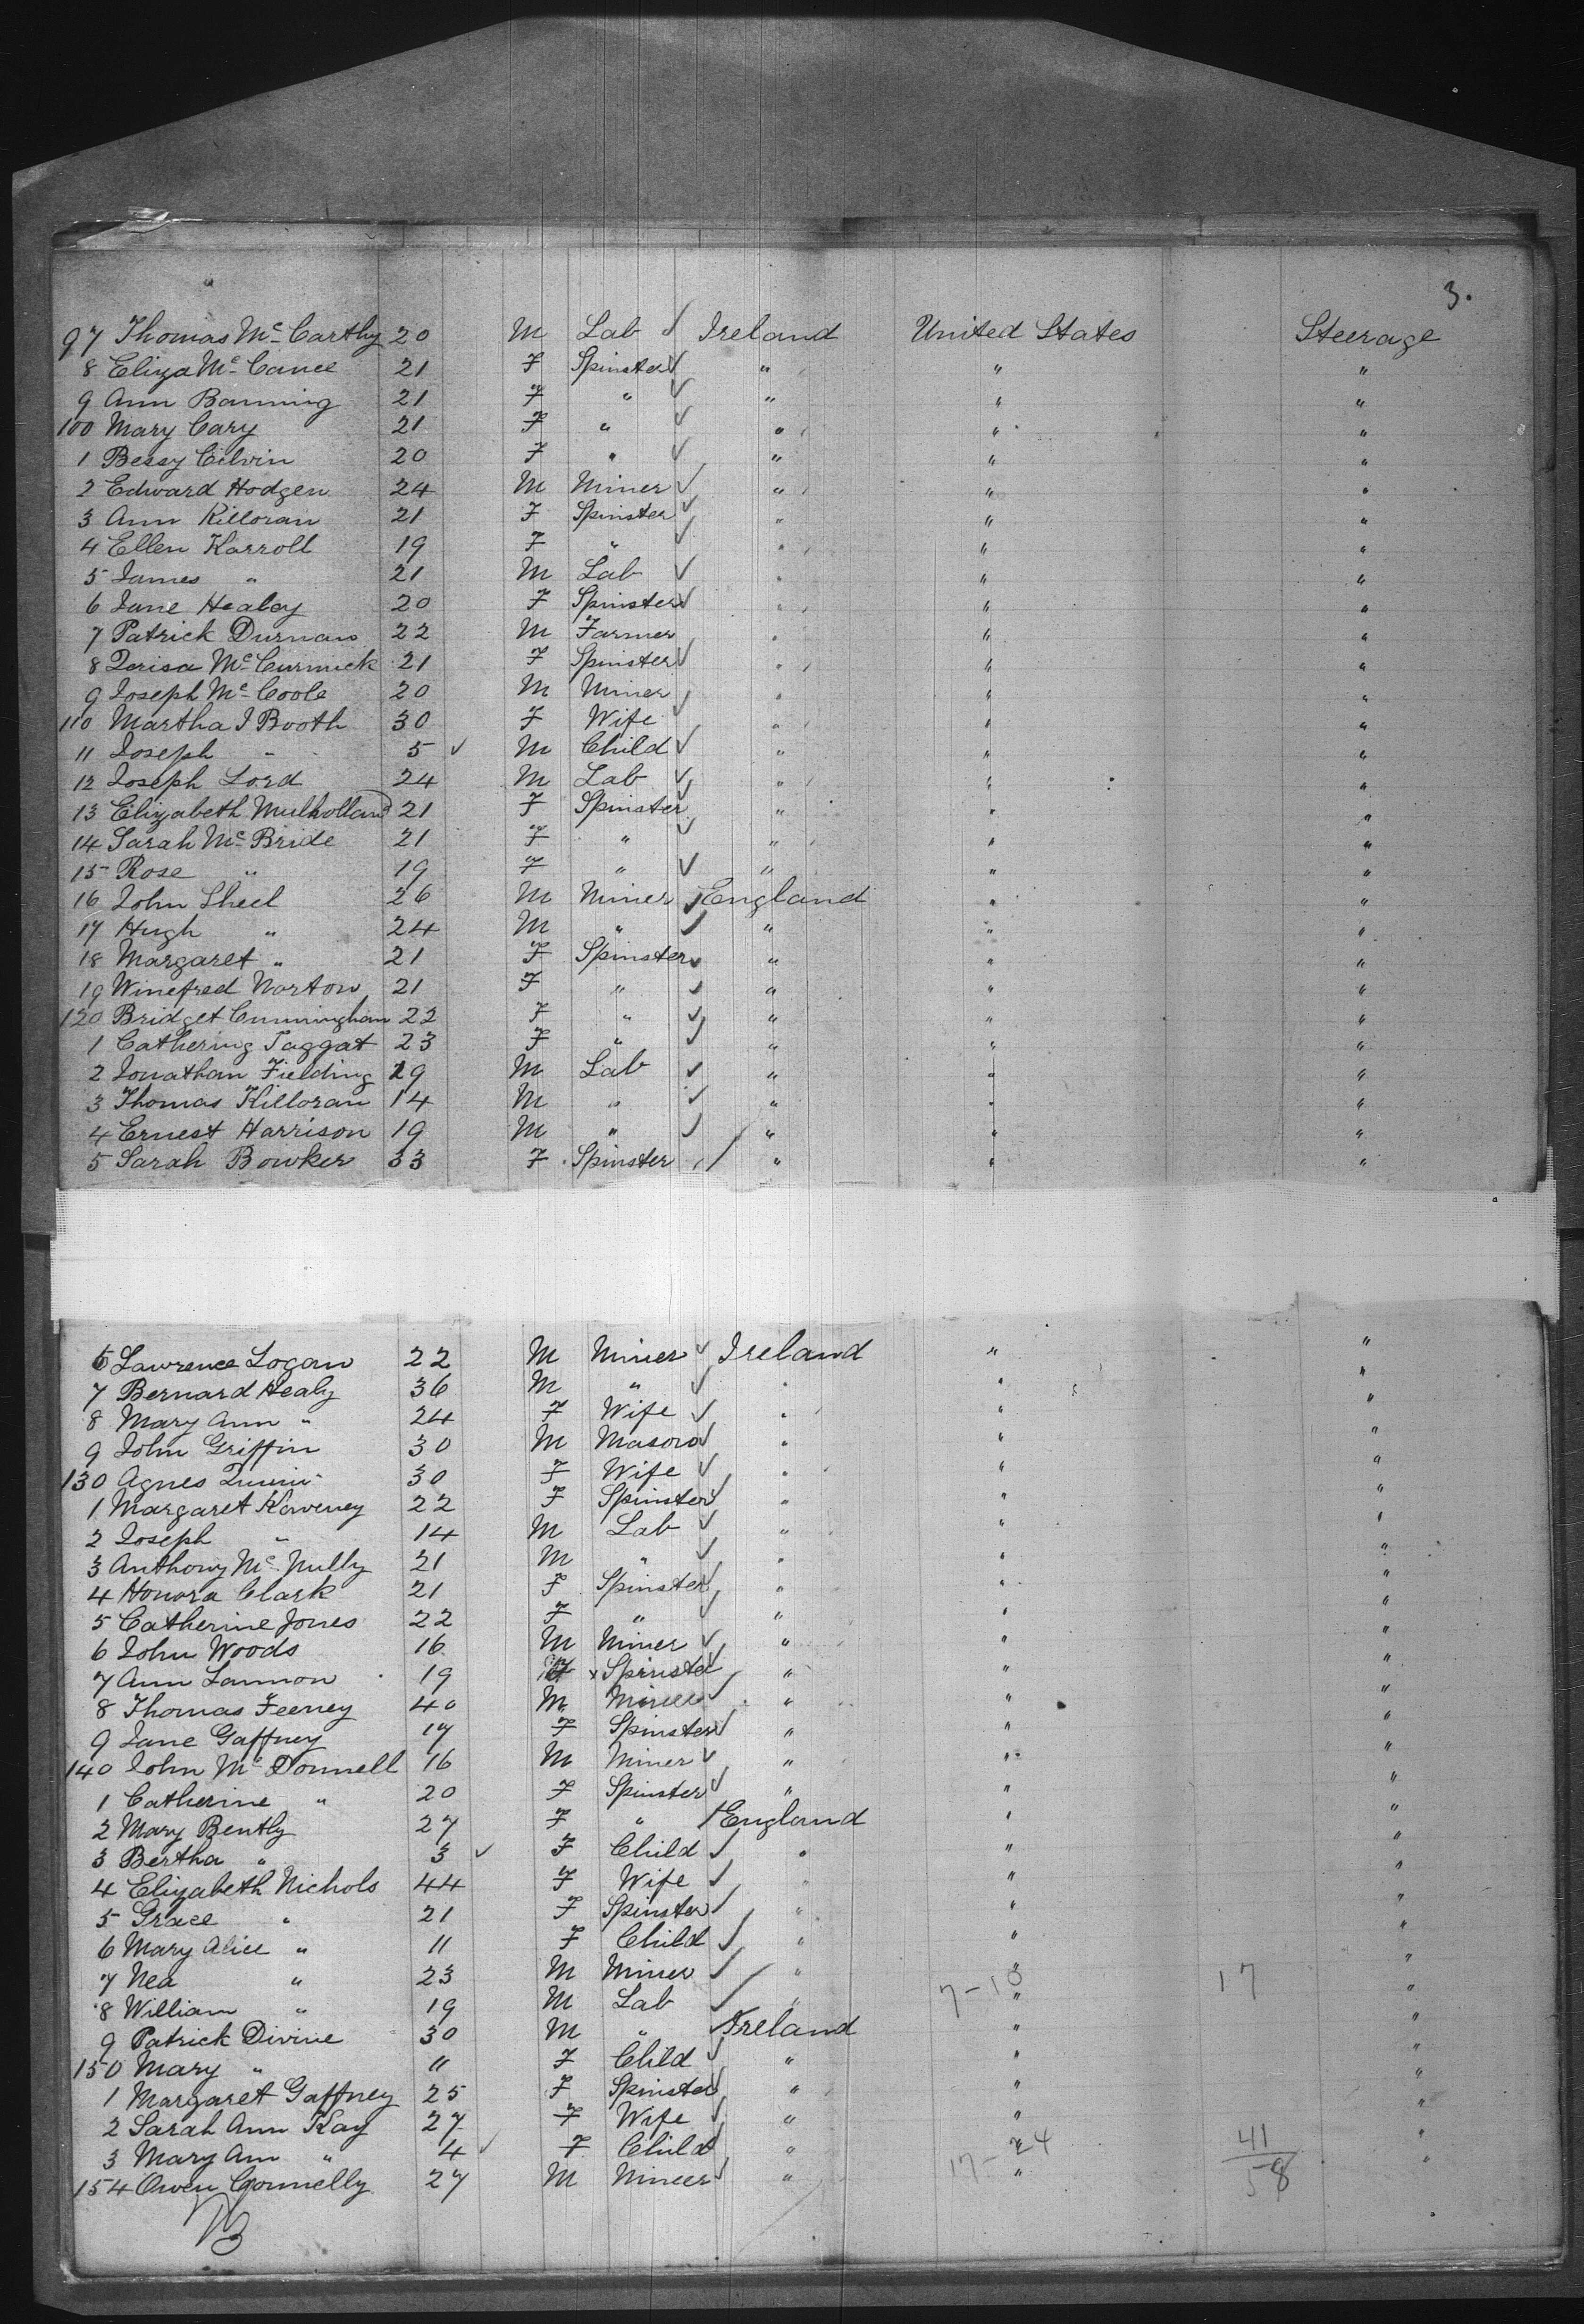 3.
97 Thomas Mc Carthy 20 M Lab ✓ Ireland United States Steerage
8 Eliza Mc Cance 21 F Spinster ✓ " " "
9 Ann Banning 21 F " ✓ " " "
100 Mary Cary 21 F " ✓ " " "
1 Bessy Cilvin 20 F " ✓ " " "
2 Edward Hodgen 24 M Miner ✓ " " "
3 Ann Killoran 21 F Spinster ✓ " " "
4 Ellen Karroll 19 F " ✓ " " "
5 James " 21 M Lab ✓ " " "
6 Jane Healey 20 F Spinster ✓ " " "
7 Patrick Durnan 22 M Farmer " " "
8 Terisa Mc Curmick 21 F Spinster ✓ " " "
9 Joseph Mc Coole 20 M Miner " " "
110 Martha J Booth 30 F Wife ✓ " " "
11 Joseph " 5 ✓ M Child ✓ " " "
12 Joseph Lord 24 M Lab ✓ " " "
13 Elizabeth Mulholland 21 F Spinster ✓ " " "
14 Sarah Mc Bride 21 F " ✓ " " "
15 Rose " 19 F " ✓ " " "
16 John Sheel 26 M Miner ✓ England " "
17 Hugh " 24 M " ✓ " " "
18 Margaret " 21 F Spinster ✓ " " "
19 Winefred Norton 21 F " ✓ " " "
120 Bridget Cunningham 22 F " ✓ " " "
1 Cathering Taggat 23 F " ✓ " " "
2 Jonathan Fielding 19 M Lab ✓ " " "
3 Thomas Killoran 14 M " ✓ " " "
4 Ernest Harrison 19 M " ✓ " " "
5 Sarah Bowker 33 F Spinster ✓ " " "
6 Lawrence Logan 22 M Miner ✓ Ireland " "
7 Bernard Healy 36 M " ✓ " " "
8 Mary Ann " 24 F Wife ✓ " " "
9 John Griffin 30 M Mason ✓ " " "
130 Agnes 30 F Wife ✓ " " "
1 Margaret Koveney 22 F Spinster ✓ " " "
2 Joseph " 14 M Lab ✓ " " "
3 Anthony Mc Nully 21 M " ✓ " " "
4 Honora Clark 21 F Spinster ✓ " " "
5 Catherine Jones 22 F " ✓ " " "
6 John Woods 16 M Miner ✓ " " "
7 Ann Lannon 19 F x Spinster ✓ " " "
8 Thomas Feeney 40 M Miner ✓ " " "
9 Jane Gaffney 17 F Spinster ✓ " " "
140 John Mc Donnell 16 M Miner ✓ " " "
1 Catherine " 20 F Spinster ✓ " " "
2 Mary Bently 27 F " ✓ England " "
3 Bertha " 3 ✓ F Child ✓ " " "
4 Elizabeth Nichols 44 F Wife ✓ " " "
5 Grace " 21 F Spinster ✓ " " "
6 Mary Alice " 11 F Child ✓ " " "
7 Nea " 23 M Miner ✓ " " "
7-10 17
8 William " 19 M Lab ✓ " " "
9 Patrick Divine 30 M " ✓ Ireland " "
150 Mary " 11 F Child ✓ " " "
1 Margaret Gaffney 25 F Spinster ✓ " " "
2 Sarah Ann Kay 27 F Wife ✓ " " "
3 Mary Ann " 4 ✓ F Child ✓ " " "
17-24 41
154 Owen Connelly 27 M Mineer ✓ " " "
58